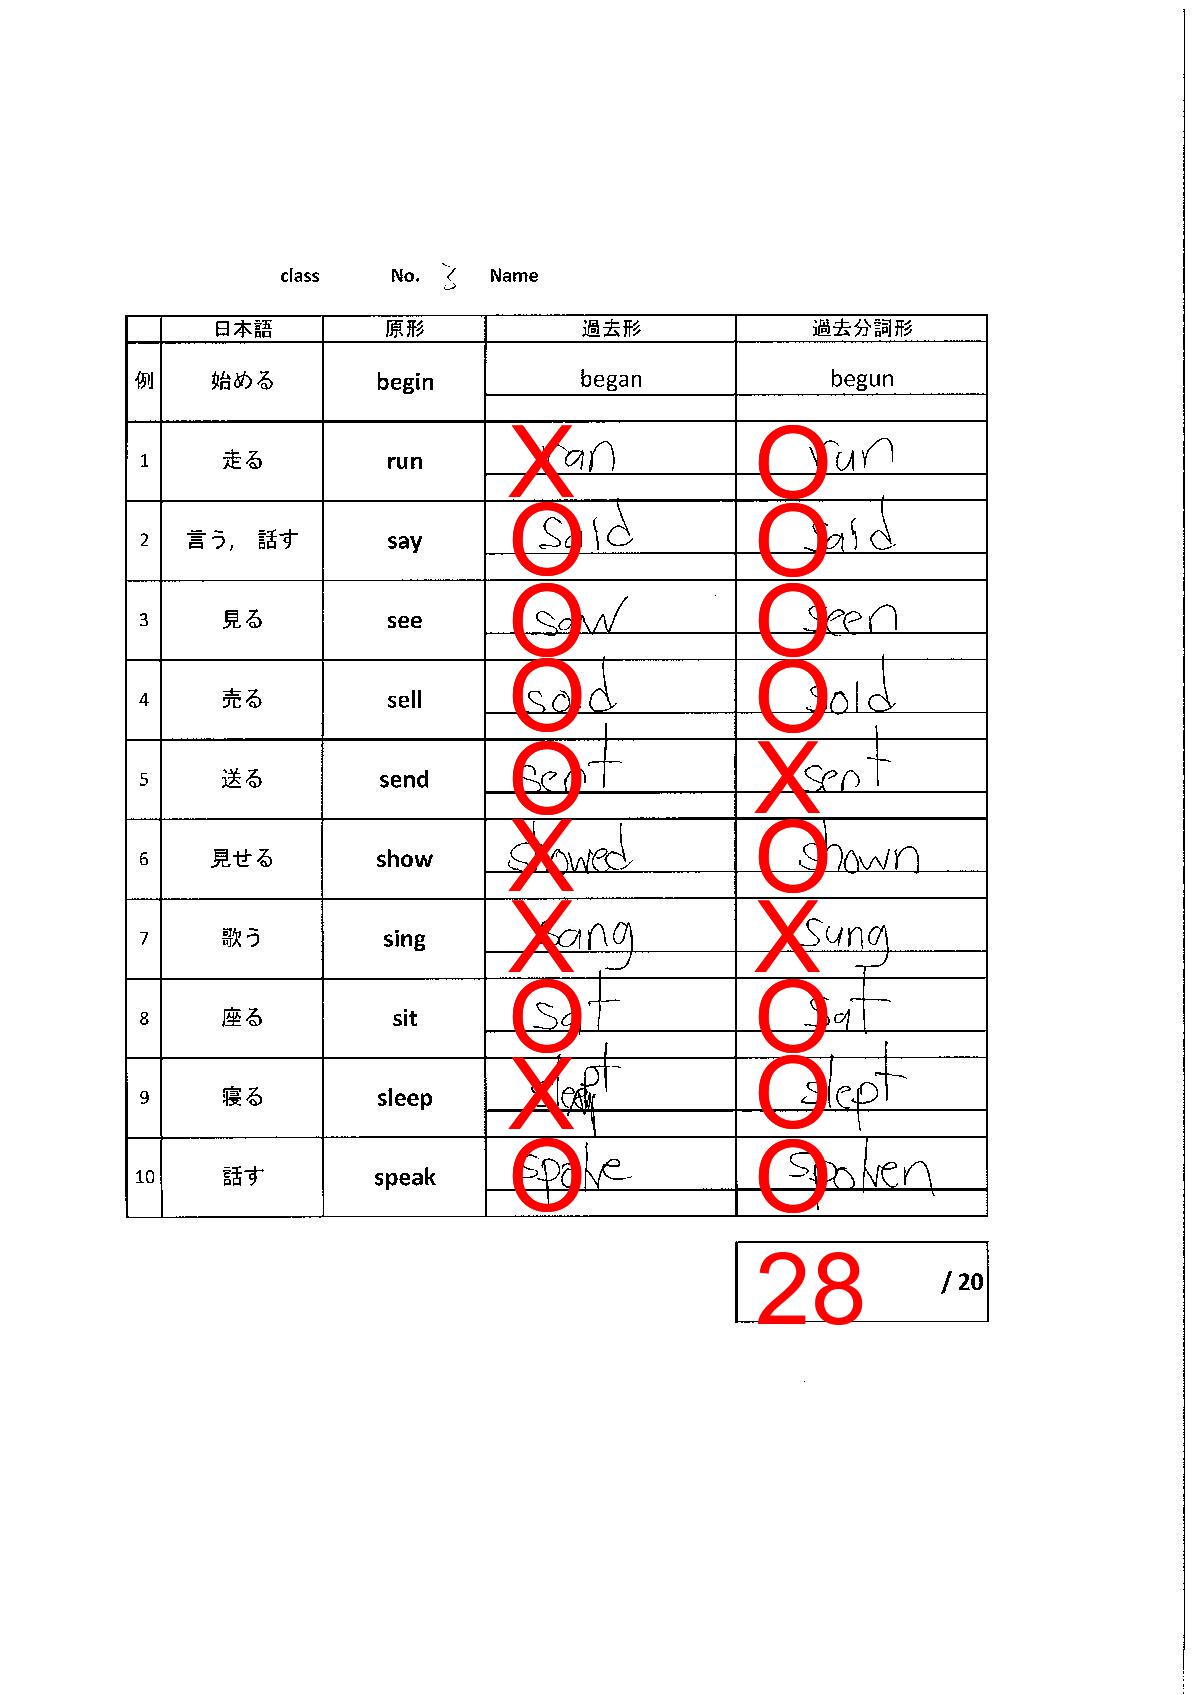 class No. 3 Name
日本語 原形 過去形 過去分詞形
例 始める begin began begun
1 走る run X ran O run
2 言う, 話す say O said O said
3 見る see O saw O seen
4 売る sell O sold O sold
5 送る send O sent X sent
6 見せる show X showed O shown
7 歌う sing X sang X sung
8 座る sit O sat O sat
9 寝る sleep X slept O slept
10 話す speak O spoke O spoken
28 / 20